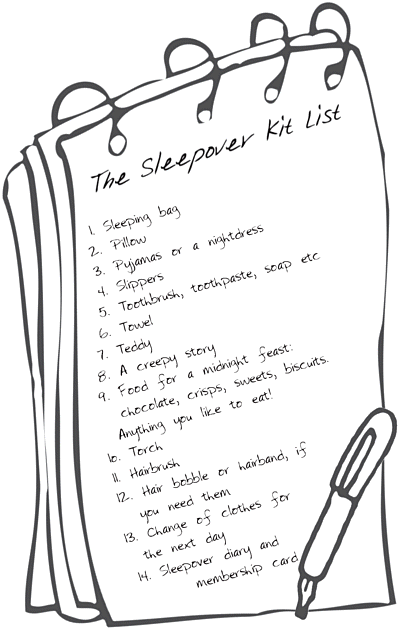 The Sleepover Kit List
1. Sleeping bag
2. Pillow
3. Pyjamas or a nightdress
4. Slippers
5. Toothbrush, toothpaste, soap etc
6. Towel
7. Teddy
8. A creepy story
9. Food for a midnight feast:
chocolate, crisps, sweets, biscuits.
Anything you like to eat!
10. Torch
11. Hairbrush
12. Hair bobble or hairband, if
you need them
13. Change of clothes for
the next day
14. Sleepover diary and
membership card